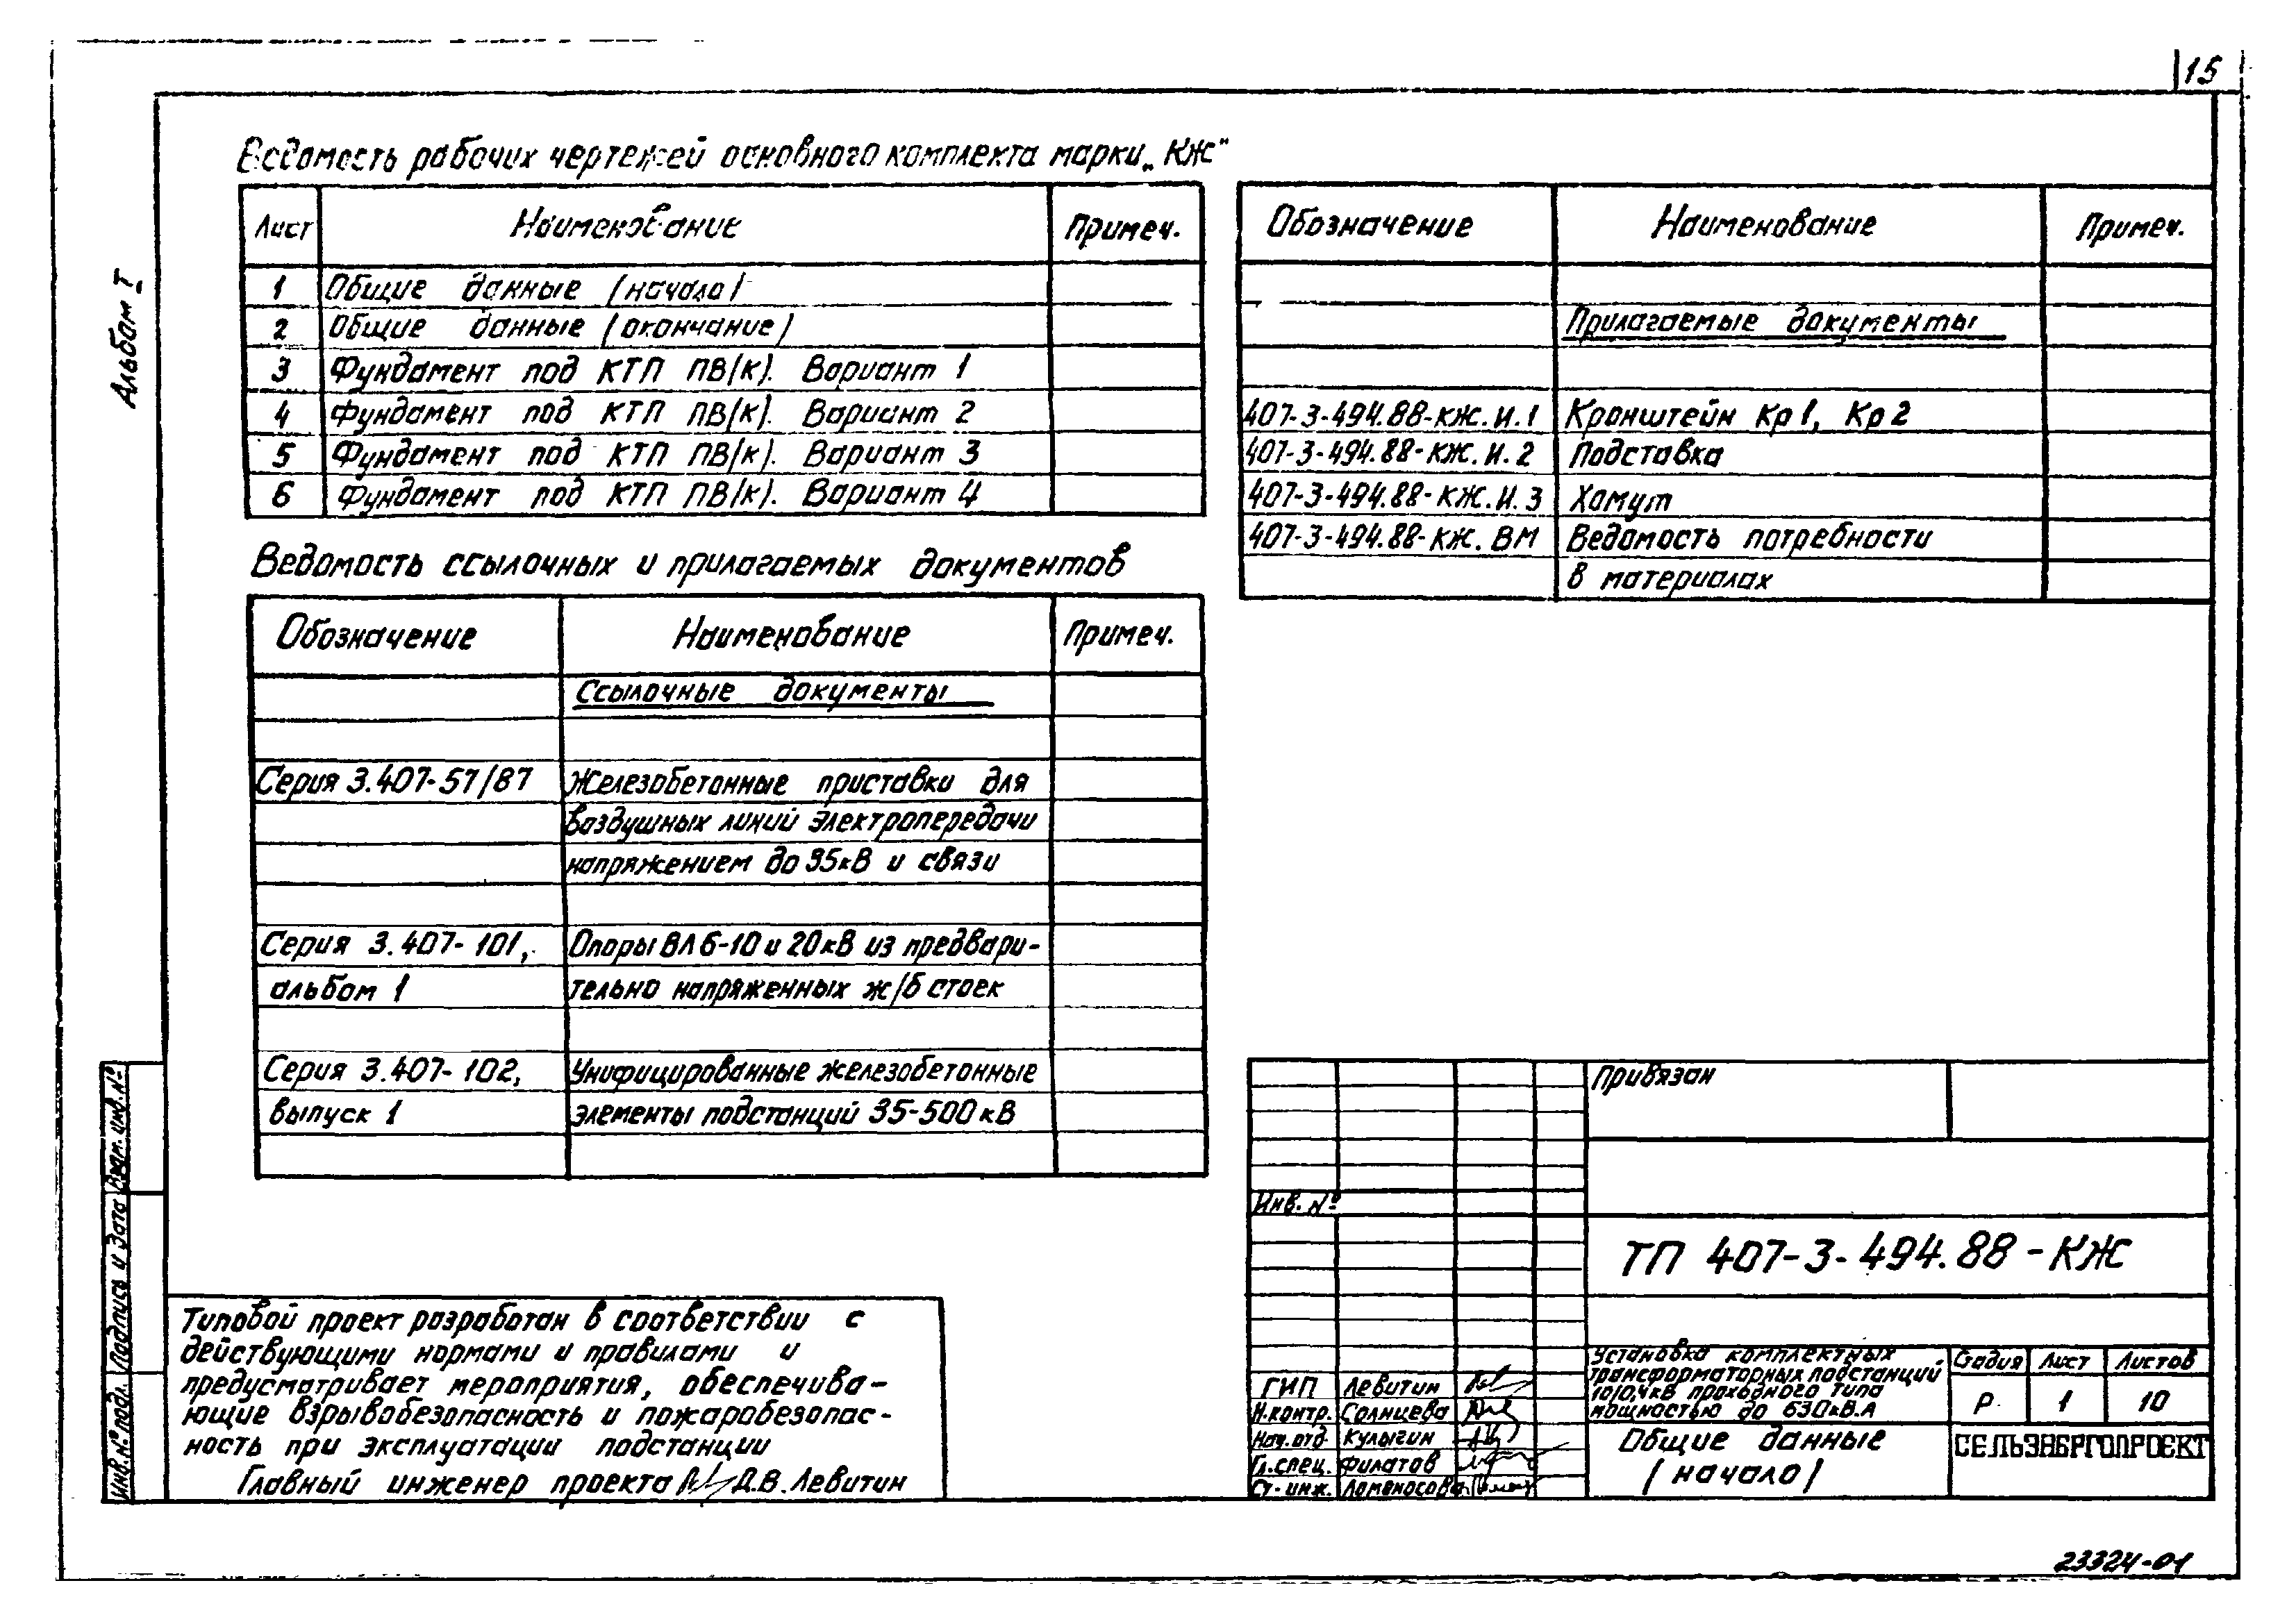 15
Альбом I
Ведомость рабочих чертежей основного комплекта марки „КЖ"
Лист Наименование Примеч.
1 Общие данные (начало)
2 Общие данные (окончание)
3 Фундамент под КТП ПВ(К). Вариант 1
4 Фундамент под КТП ПВ(К). Вариант 2
5 Фундамент под КТП ПВ(К). Вариант 3
6 Фундамент под КТП ПВ(К). Вариант 4
Ведомость ссылочных и прилагаемых документов
Обозначение Наименование Примеч.
Ссылочные документы
Серия 3.407-57/87 Железобетонные приставки для
воздушных линий электропередачи
напряжением до 35кВ и связи
Серия 3.407-101, Опоры ВЛ 6-10 и 20кВ из предвари-
альбом 1 тельно напряженных ж/б стоек
Серия 3.407-102, Унифицированные железобетонные
выпуск 1 элементы подстанций 35-500кВ
Обозначение Наименование Примеч.
Прилагаемые документы
407-3-494.88-КЖ.И.1 Кронштейн Кр1, Кр2
407-3-494.88-КЖ.И.2 Подставка
407-3-494.88-КЖ.И.3 Хомут
407-3-494.88-КЖ.ВМ Ведомость потребности
в материалах
Типовой проект разработан в соответствии с
действующими нормами и правилами и
предусматривает мероприятия, обеспечива-
ющие взрывобезопасность и пожаробезопас-
ность при эксплуатации подстанции
Главный инженер проекта Д.В. Левитин
Взам. инв. №
Подпись и дата
Инв. № подл.
Привязан
Инв. №
ТП 407-3-494.88-КЖ
ГИП Левитин
Н.контр. Солнцева
Нач.отд Кулыгин
Гл.спец. Филатов
Ст.инж. Ломоносова
Установка комплектных
трансформаторных подстанций
10/0,4кВ проходного типа
мощностью до 630кВ.А
Стадия Лист Листов
Р 1 10
Общие данные
(начало)
СЕЛЬЭНЕРГОПРОЕКТ
23324-01